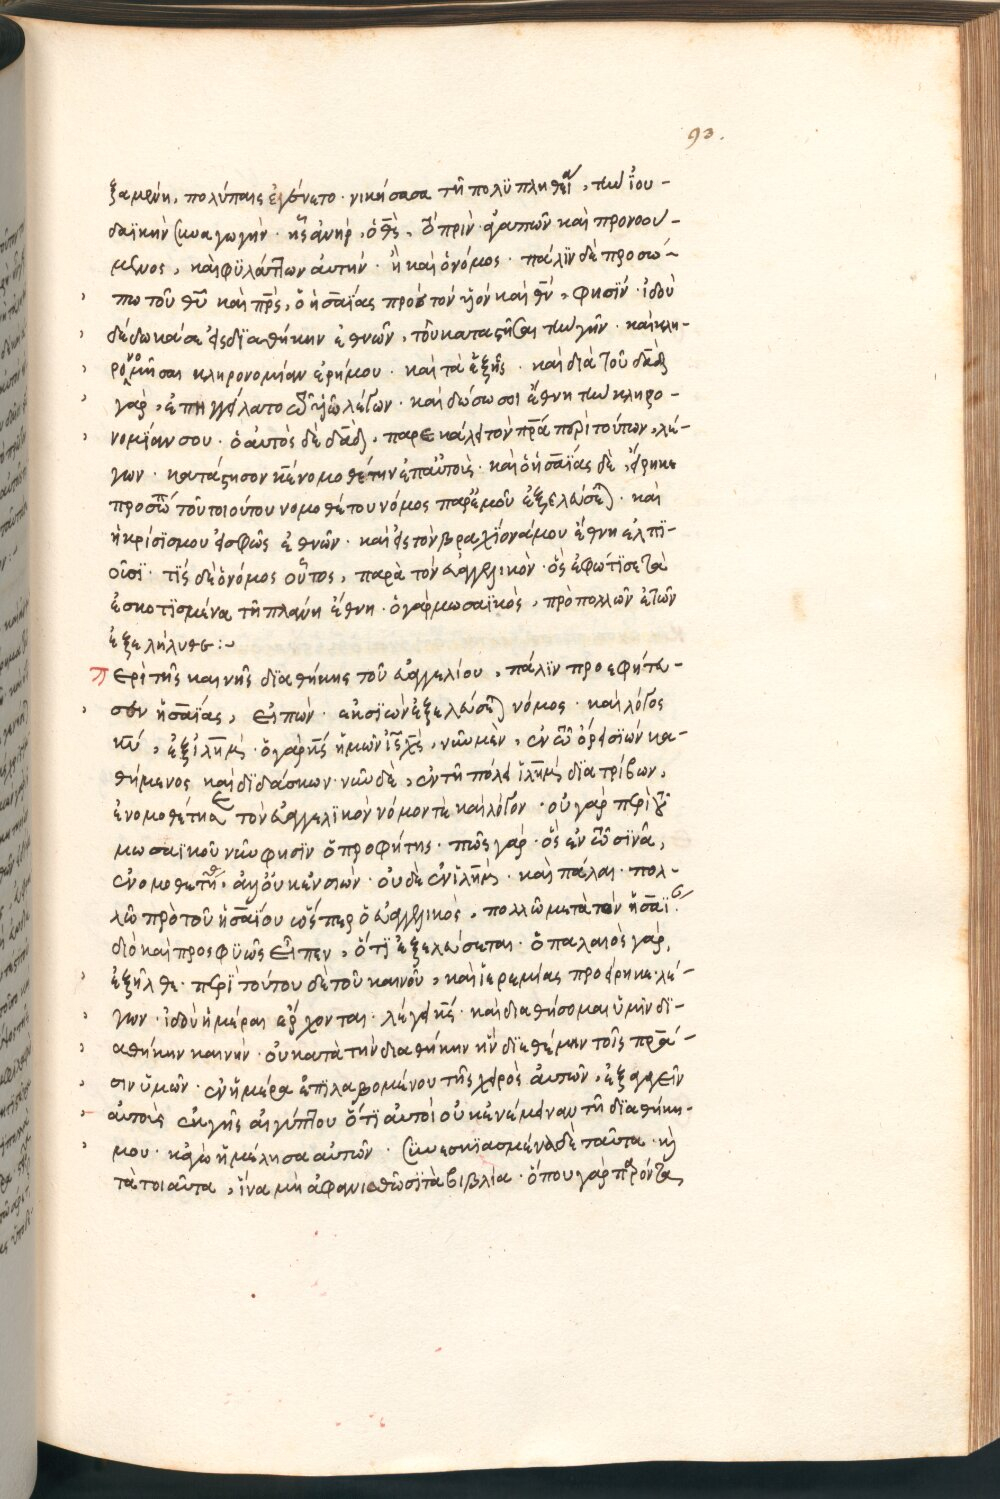 93.
ξαμένη, πολύπαις ἐγένετο · νικήσασα τῆ πολϋπληθεία, τὴν ἰου-
δαϊκὴν συναγωγὴν · ἧς ἀνὴρ, ὁ θς, ὁ πρὶν ἀγαπῶν καὶ προνοού-
μενος, καὶ φϋλάττων αὐτήν · ἢ καὶ ὁ νόμος · πάλϊν δὲ προσώ-
πω τοῦ θυ καὶ πρς, ὁ ἡσαΐας πρὸς τὸν υἱὸν καὶ θν, φησΐν · ἰδοὺ
δέδωκά σε εἰς δϊαθήκην ἐθνῶν, τοῦ καταστῆσαι τὴν γῆν · καὶ κλη-
ρονομῆσαι κληρονομίαν ἐρήμου · καὶ τὰ ἑξῆς · καὶ διὰ τοῦ δαδ
γὰρ, ἐπηγγείλατο τῶ υἱῶ λέγων · καὶ δώσω σοι ἔθνη τὴν κληρο-
νομΐαν σου · ὁ αὐτὸς δὲ δαδ, παρεκάλει τὸν πρα περὶ τούτων, λέ-
γων · κατάστησον κε νομοθέτην ἐπ' αὐτοὺς · καὶ ὁ ἡσαΐας δὲ, εἴρηκε
προσώπω τοῦ τοιούτου νομοθέτου νόμος παρ' ἐμοῦ ἐξελεύσεται · καὶ
ἡ κρίσϊς μου εἰς φῶς ἐθνῶν · καὶ εἰς τὸν βραχΐονά μου ἔθνη ἐλπϊ-
οῦσϊ · τΐς δὲ ὁ νόμος οὗτος, παρὰ τὸν εὐαγγελικὸν · ὃς ἐφώτϊσε τὰ
ἐσκοτϊσμένα τῆ πλάνη ἔθνη · ὁ γὰρ μωσαϊκὸς, πρὸ πολλῶν ἐτῶν
ἐξελήλυθε :~
Περὶ τῆς καινῆς δϊαθήκης τοῦ εὐαγγελίου, πάλϊν προεφήτευ-
σεν ἡσαΐας, εἰπών · ἐκ σϊὼν ἐξελεύσεται νόμος · καὶ λόγος
κυ, ἐξ ιλημ · ὁ γὰρ κς ἡμῶν ις χς, νῦν μὲν, ἐν τῶ ὄρει σϊὼν κα-
θήμενος καὶ δϊδάσκων · νῦν δὲ, ἐν τῆ πόλει ιλημ δϊατρίβων,
ἐνομοθέτησε τὸν εὐαγγελϊκὸν νόμον τὲ καὶ λόγον · οὐ γὰρ περὶ τοῦ
μωσαϊκοῦ νῦν φησϊν ὁ προφήτης · πῶς γάρ · ὃς ἐν τῶ σϊνᾶ,
ἐνομοθετήθη, ἀλλ' οὐκ ἐν σιών · οὐδὲ ἐν ιλημ · καὶ πάλαι · πολ-
λῶ πρὸ τοῦ ἡσαΐου ὥσπερ ὁ εὐαγγελικὸς, πολλῶ μετὰ τὸν ἡσαΐου.
διὸ καὶ προσφϋῶς εἶπεν, ὅτϊ ἐξελεύσεται · ὁ παλαιὸς γὰρ,
ἐξῆλθε · περὶ τούτου δὲ τοῦ καινοῦ, καὶ ἱερεμίας προείρηκε λέ-
γων · ἰδοὺ ἡμέραι ἔρχονται · λέγει κς · καὶ διαθήσομαι ὑμῖν δϊ-
αθήκην καινὴν · οὐ κατὰ τὴν διαθήκην ἣν δϊεθέμην τοῖς πρά-
σιν ὑμῶν · ἐν ἡμέρα ἐπϊλαβομένου τῆς χειρὸς αὐτῶν, ἐξαγαγεῖν
αὐτοὺς ἐκ γῆς αἰγύπτου ὅτϊ αὐτοὶ οὐκ ἐνέμειναν τῆ δϊαθήκη-
μου · κἀγὼ ἠμέλησα αὐτῶν · συνεσκϊασμένα δὲ ταῦτα · καὶ
τὰ τοιαῦτα, ἵνα μὴ ἀφανισθῶσϊ τὰ βιβλία · ὅπου γὰρ παρόντα